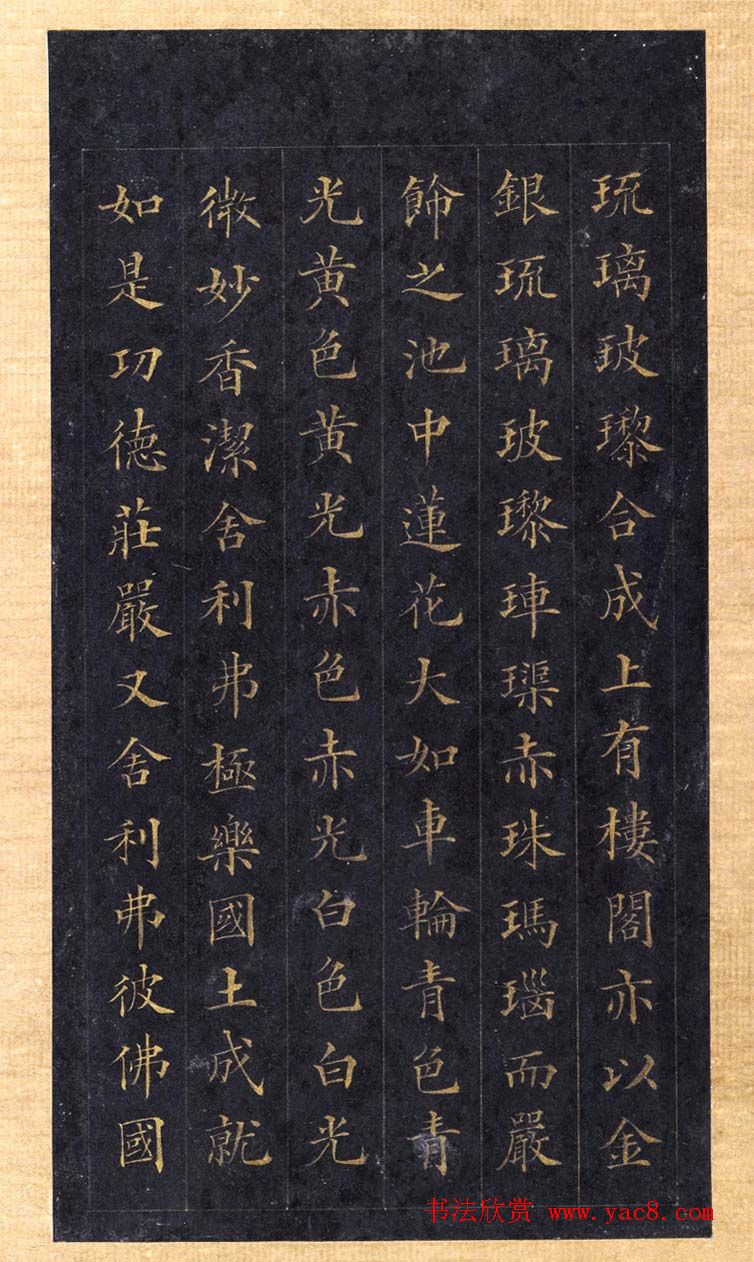 琉璃玻瓈合成上有樓閣亦以金
銀琉璃玻瓈硨磲赤珠瑪瑙而嚴
飾之池中蓮花大如車輪青色青
光黃色黃光赤色赤光白色白光
微妙香潔舍利弗極樂國土成就
如是功德莊嚴又舍利弗彼佛國
书法欣赏 www.yac8.com